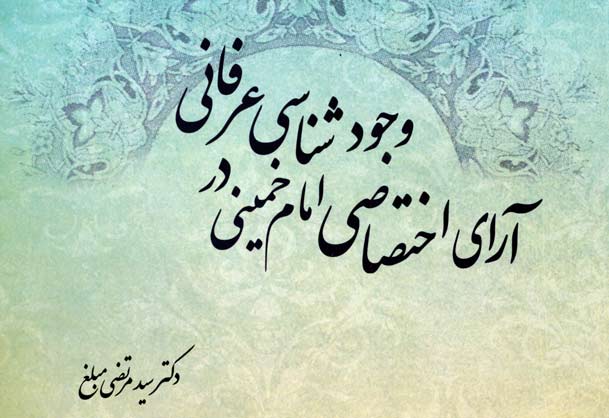 آرای اختصاصی امام خمینی در
وجودشناسی عرفانی
دکتر سید مرتضی مبلغ